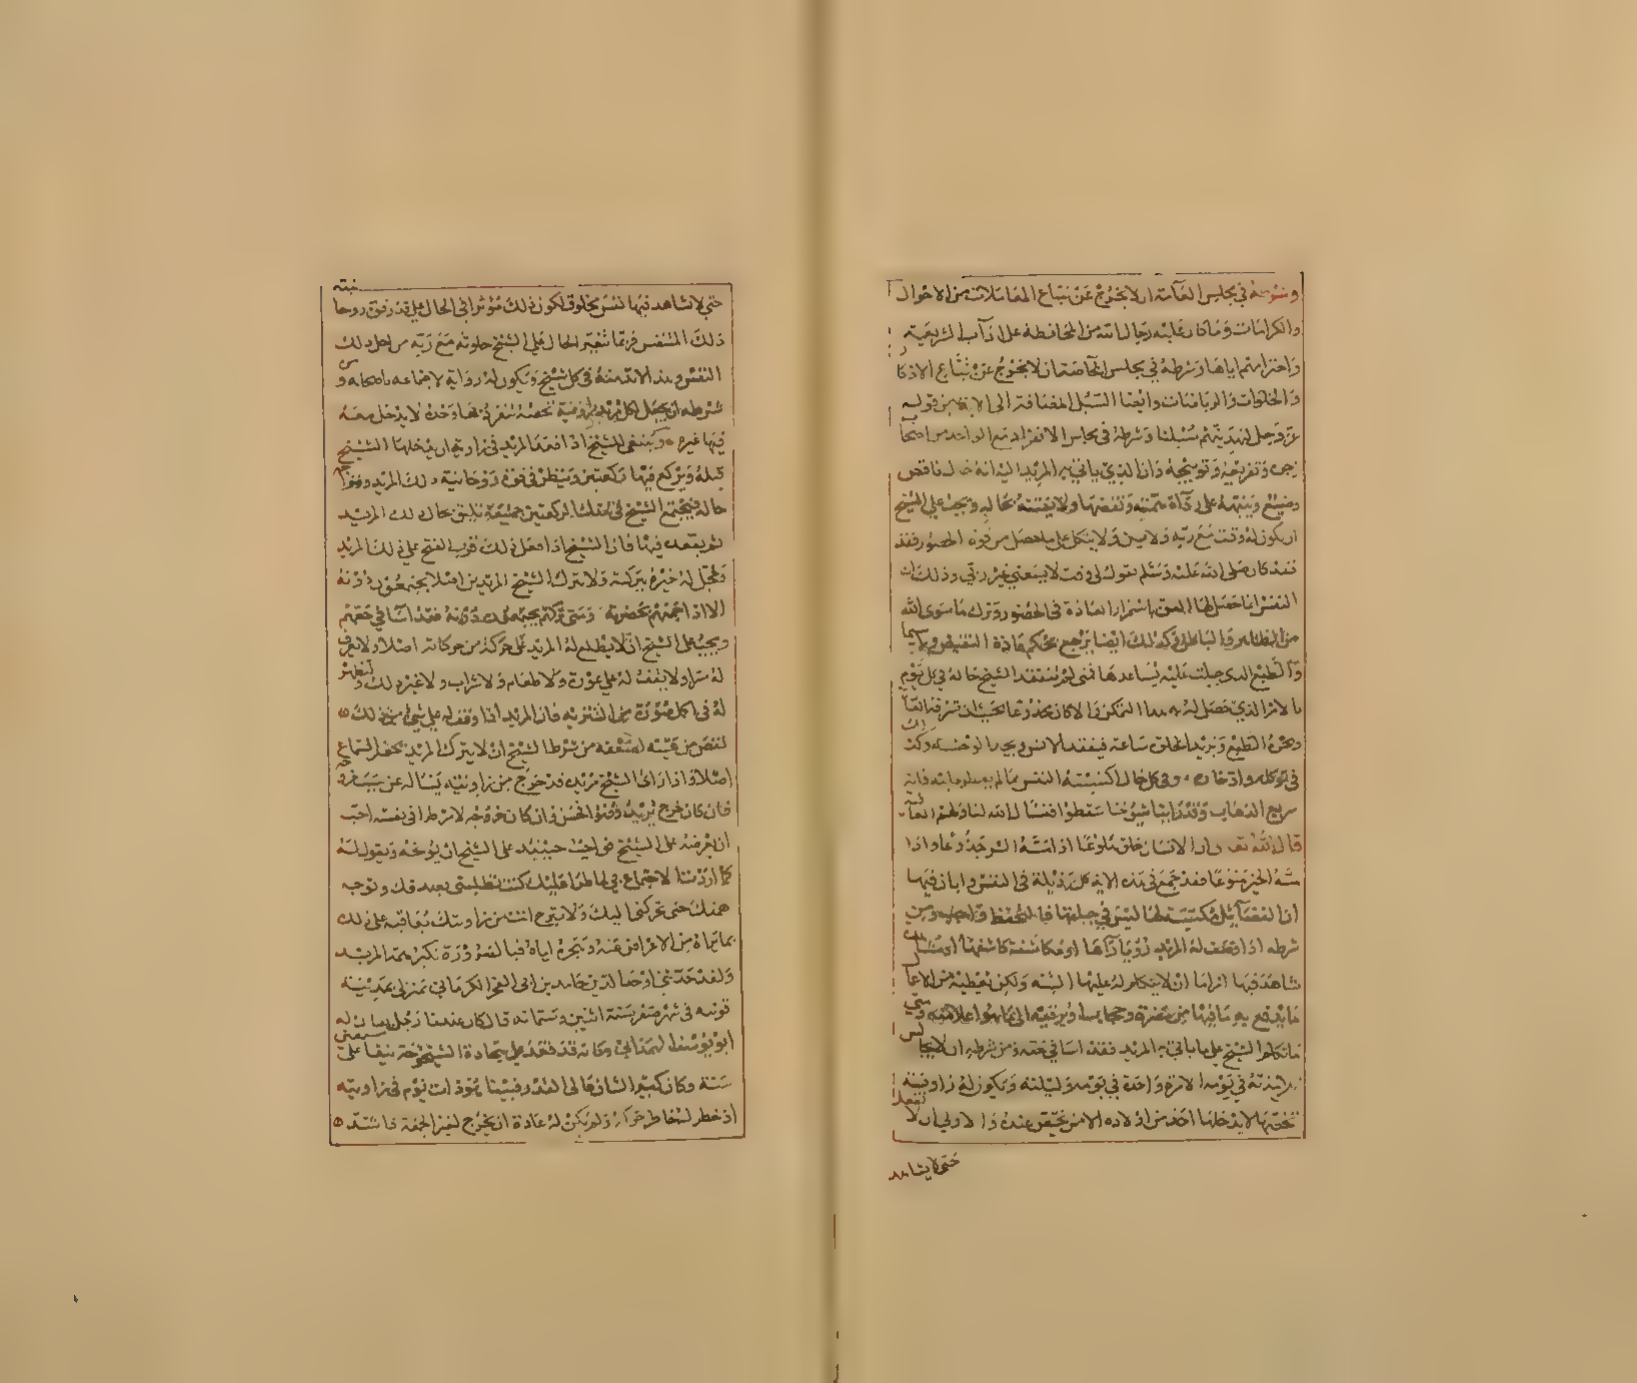 وشرطه في مجلس العامة ان لا يخرج عن نتايج المعاملات من الاحوال
والكرامات وما كان عليه رجال الله من المحافظة على اداب الشريعة
واحترامهم اياها وشرطه في مجلس الخاصة ان لا يخرج عن نتايج الاذكار
والخلوات والرياضات وايضا السبل المضافة الى الاية من قوله
عز وجل لنهدينهم سبلنا وشرطه في مجلس الانفراد مع الواحد من اصحابه
زجره وتقريعه وتوبيخه وان الذي ياتي به المريد اليه انه حال ناقص
وضيع وينبهه على رداة همته ونقصها ولا يفتنه بحاله ويجب على الشيخ
ان يكون له وقت مع ربه ولا بد ولا يتكل على ما حصل من قوة الحضور فقد
فقد كان صلى الله عليه وسلم يقول لي وقت لا يسعني غير ربي وذلك ان
النفس انما حصل لها القوة باستمرار العادة في الحضور وترك ما سوى الله
من الظاهر والباطن فكذلك ايضا يرجع بحكم عادة النقيض ولا سيما
والطبع الذي جبلت عليه يساعدها فمتى لم يتفقد الشيخ حاله في كل يوم
بالامر الذي حصل له به هذا التمكن والا كان مخدوعا بحيث ان تسرقه العادة
ويجره الطبع ويريد الخلق ساعة فيفقد الانس ويجد الوحشة وكذلك
في توكله وادخاره وفي كل حال اكتسبته النفس مما لم يفطر عليه فانه
سريع الذهاب وقد راينا شيوخا سقطوا فنسال الله لنا ولهم العافية
قال الله تعالى ان الانسان خلق هلوعا اذا مسه الشر جزوعا واذا
مسه الخير منوعا فقد جمع في هذه الاية كل رذيلة في النفس وابان فيها
ان الفضايل مكتسبة لها ليس في جبلتها فالتحفظ واجب ومن
شرطه اذا وصف له المريد رؤيا راها او مكاشفة كاشفها او مشهدا
شاهد فيها امرا ما ان لا يتكلم له عليها البتة ولكن يعطيه من الاعمال
ما يدفع به ما فيها من مضرة وحجاب ويرقيه الى ما هو اعلا منه ومتى
ما تكلم الشيخ على ما ياتي به المريد فقد اسا في حقه ومن شرطه ان لا يجالس
تلامذته في يومه الا مرة واحدة في يومه وليلته ويكون له زاوية
تخصه لا يدخلها احد من اولاده الا من يختص عنده والاولى ان لا يفعل
حتى لا يشاهد
حتى لا يشاهد فيها نفس مخلوق لكون ذلك مؤثرا في الحال على قدر قوة روحانية
ذلك المتنفس فربما تغير الحال على الشيخ خلوته مع ربه من اجل ذلك
النفس وهذا لا يعرفه كل شيخ ويكون له زاوية لاجتماعه باصحابه ومن
شرطه ان يجعل لكل مريد زاوية تخصه ينفرد بها وحده لا يدخل معه
فيها غيره وينبغي للشيخ اذا اقعد المريد في زاوية ان يدخلها الشيخ
قبله ويركع فيها ركعتين وينظر في قوة روحانية ذلك المريد وما يعطيه
حاله فيجتمع الشيخ في تلك الركعتين جمعية تليق بحال ذلك المريد
ثم يقعده فيها فان الشيخ اذا فعل ذلك قرب الفتح على ذلك المريد
وعجل له خيره ببركته ولا يترك الشيخ المريدين اصلا يجتمعون دونه
الا اذا جمعهم بحضرته ومتى تركهم يجتمعون دونه فقد اسا في حقهم
ويجب على الشيخ ان لا يطلع له المريد على حركة من حركاته اصلا ولا يعرف
له سرا ولا يقف له على نوم ولا طعام ولا شراب ولا غير ذلك وليظهر
له في اكمل صورة من التنزيه فان المريد اذا وقف له على شيء من ذلك
نقص من هيبته لضعفه من شرط الشيخ ان لا يترك المريد يحضر السماع
اصلا واذا راى الشيخ مريده قد خرج من زاويته يساله عن سبب خروجه
فان كان خرج يريد وضوا لحسن وان كان خروجه لامر طرا في نفسه احب
ان يعرضه على الشيخ حينئذ على الشيخ ان يوبخه ويقول له
لما اردت الاجتماع بي لماطر عليك كنت تطلبني بصدقك وتوجه
همتك حتى تحركني اليك ولا تبرح انت من زاويتك يعاقبه على ذلك
بما يراه من الاعراض عنه وهجره اياه فبالضرورة تكبر همة المريد
ولقد حدثني اوحد الدين حامد بن ابي الفخر الكرماني بمنزلي بمدينة
قونيه في شهر صفر سنة اثنين وستماية قال كان عندنا رجل يقال له
ابو يوسف الهمداني وكان قد قعد على سجادة الشيخوخة نيفا على ستين
سنة وكان كبير الشان عالي القدر فبينا هو ذات يوم في زاويته
اذ خطر له خاطر حركه ولم يكن له عادة ان يخرج لغير الجمعة فاشتد